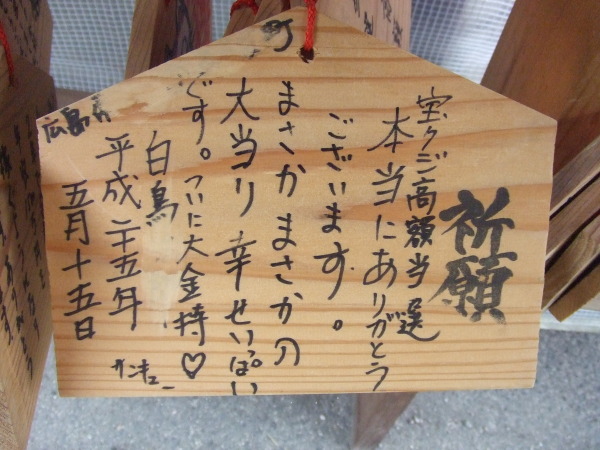 祈願
宝クジ高額当選
本当にありがとう
ございます。
まさかまさかの
大当り幸せいっぱい
です。ついに大金持♡
白鳥
平成二十五年
五月十五日
サンキュー
広島
町